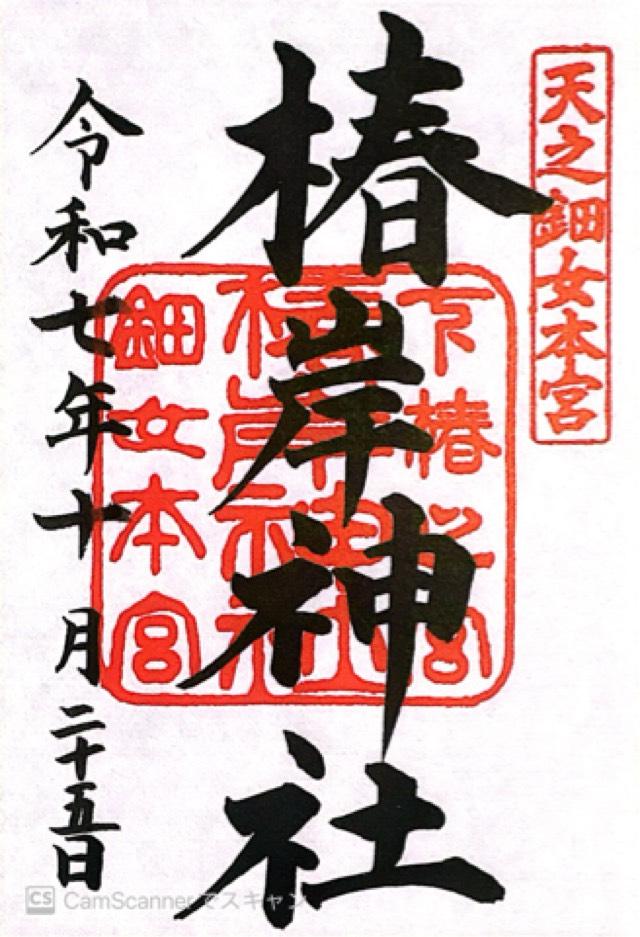 天之鈿女本宮
椿岸神社
椿岸神社
鈿女本宮
令和七年十月二十五日
CS CamScannerでスキャン